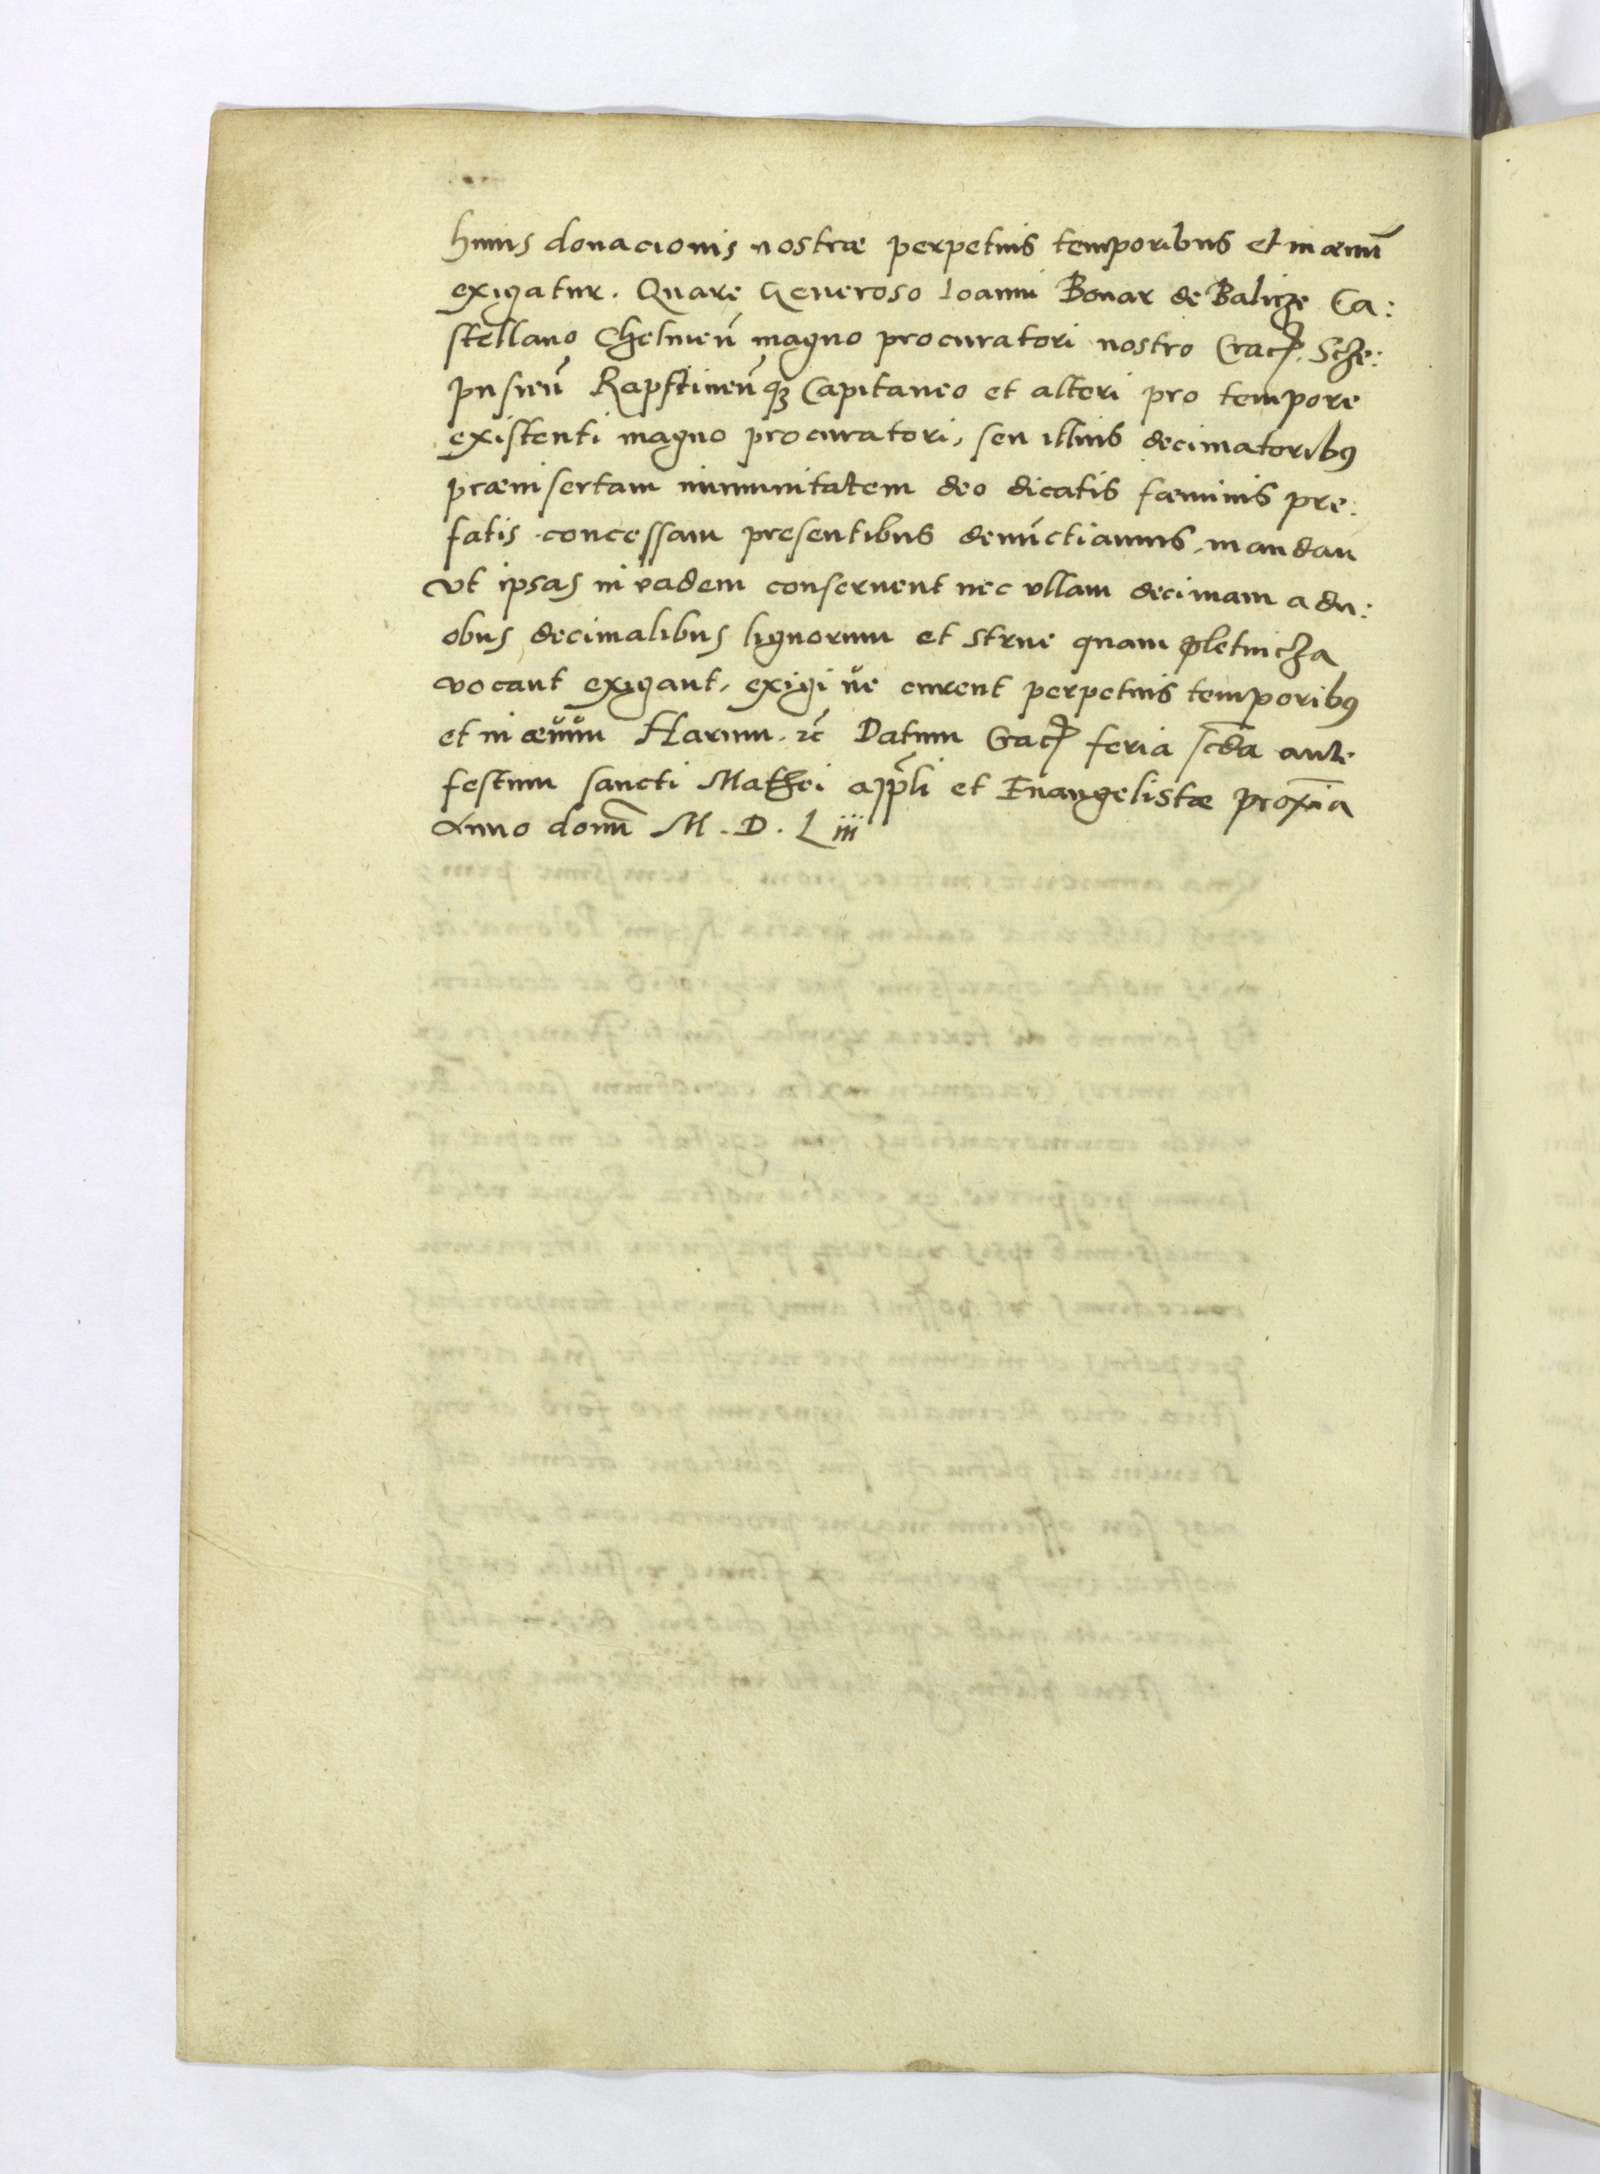 huius donacionis nostræ perpetuis temporibus et in ævū
exigatur. Quare Generoso Ioanni Bonar de Balicze Ca:
stellano Chelmeñ magno procuratori nostro Cracꝭ. Scze:
pusieñ Rapstineñqꝫ Capitaneo et alteri pro tempore
existenti magno procuratori, seu illius decimatoribꝰ
præinsertam immunitatem deo dicatis fœminis pre:
fatis concessam presentibus denūctiamus, mandañ
vt ipsas in eadem conseruent nec vllam decimam a du:
obus decimalibus lignorum et strue quam pletnicza
vocant exigant, exigi ve curent perpetuis temporibꝰ
et in ævum Harum. ꝛc̃ Datum Cracꝭ feria scđa ante
festum sancti Mathei app̃li et Euangelistæ proxĩa
Anno domĩ M. D. L iii